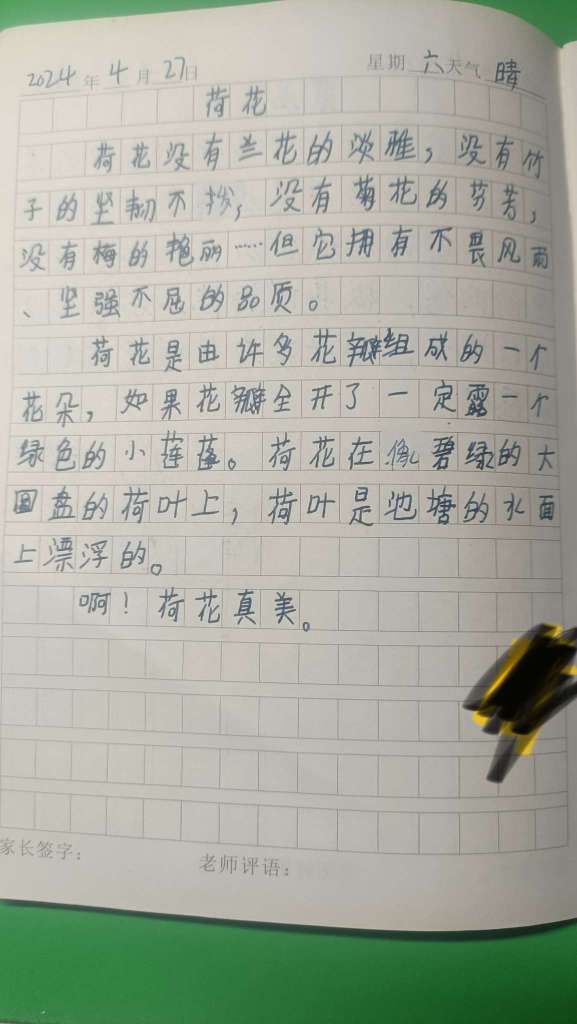 2024年4月27日 星期六天气晴
荷花
荷花没有兰花的淡雅，没有竹
子的坚韧不拔，没有菊花的芬芳，
没有梅的艳丽……但它拥有不畏风雨
、坚强不屈的品质。
荷花是由许多花瓣组成的一个
花朵，如果花瓣全开了一定露一个
绿色的小莲蓬。荷花在像碧绿的大
圆盘的荷叶上，荷叶是池塘的水面
上漂浮的。
啊！荷花真美。
家长签字：
老师评语：